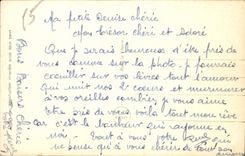 15
Ma petite Denise chérie
Mon trésor chéri et Adoré
Que je serais heureux d'être près de
vous comme sur la photo. je pourrais
cueillir sur vos lèvres tout l'amour
qui unit nos 2 cœurs et murmurer
à vos oreilles combien je vous aime
être près de vous voila tout mon rêve
car c'est le bonheur qui rayonne en
moi. Tout à vous votre
ne pense qu'à vous chérie de tout son
Bons Baisers Chérie